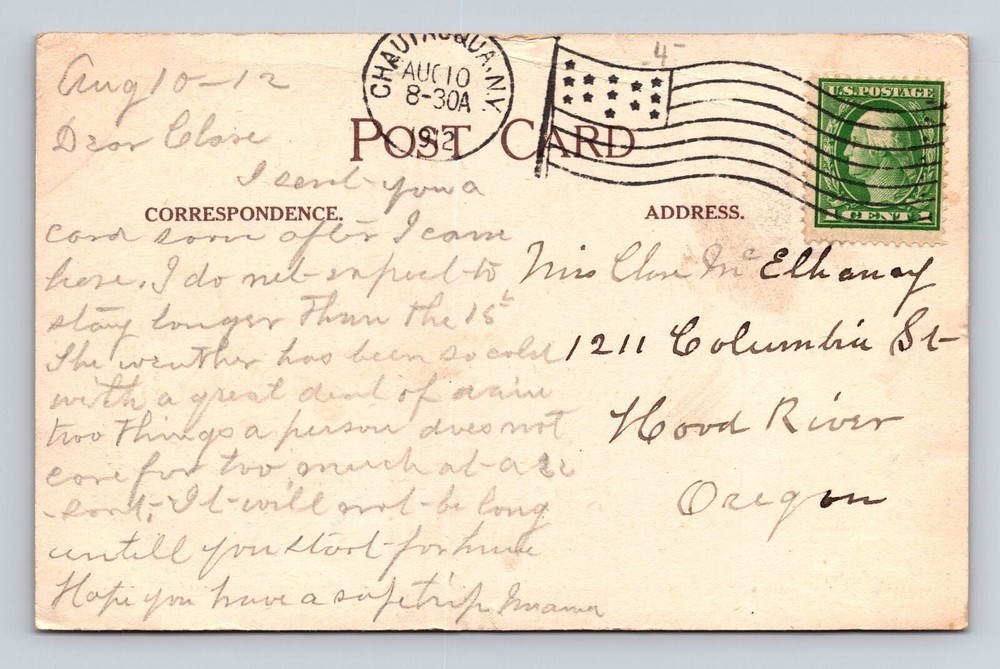 Aug 10-12
CHAUTAUQUA, N.Y.
AUG 10
8-30A
1912
4
U.S. POSTAGE
1 CENT 1
POST CARD
Dear Clare
I sent you a
CORRESPONDENCE.
ADDRESS.
card soon after I came
here. I do not expect to
stay longer than the 15
The weather has been so cold
with a great deal of rain
two things a person does not
care for too much at a re
-sort, It will not be long
untill you start for home
Hope you have a safe trip Mama
Miss Clare Mc Elhanay
1211 Columbia St
Hood River
Oregon